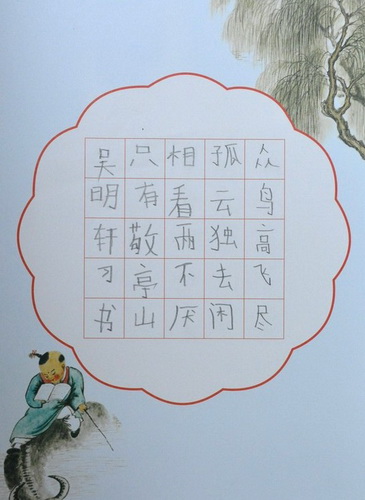 众鸟高飞尽
孤云独去闲
相看两不厌
只有敬亭山
吴明轩习书